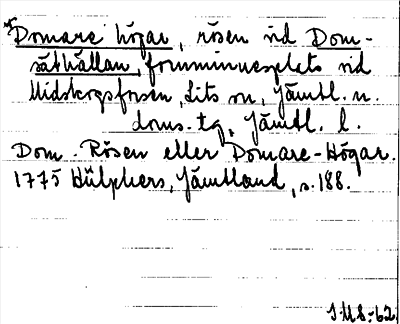 *Domare högar, rösen vid Dom-
säthällan, fornminnesplats vid
Midskogsforsen, Lits sn, Jämtl. n.
doms. tg, Jämtl. l.
Dom. Rösen eller Domare-Högar.
1775 Hülphers, Jämtland, s. 188.
JMS-62.